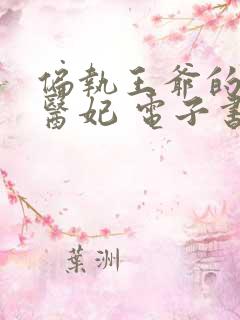 偏執王爺的
醫妃 電子書
葉洲